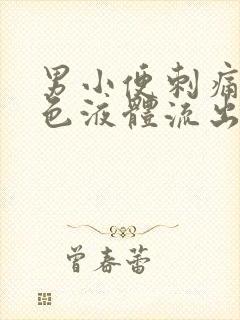 男小便刺痛
色液體流出
曾春蕾